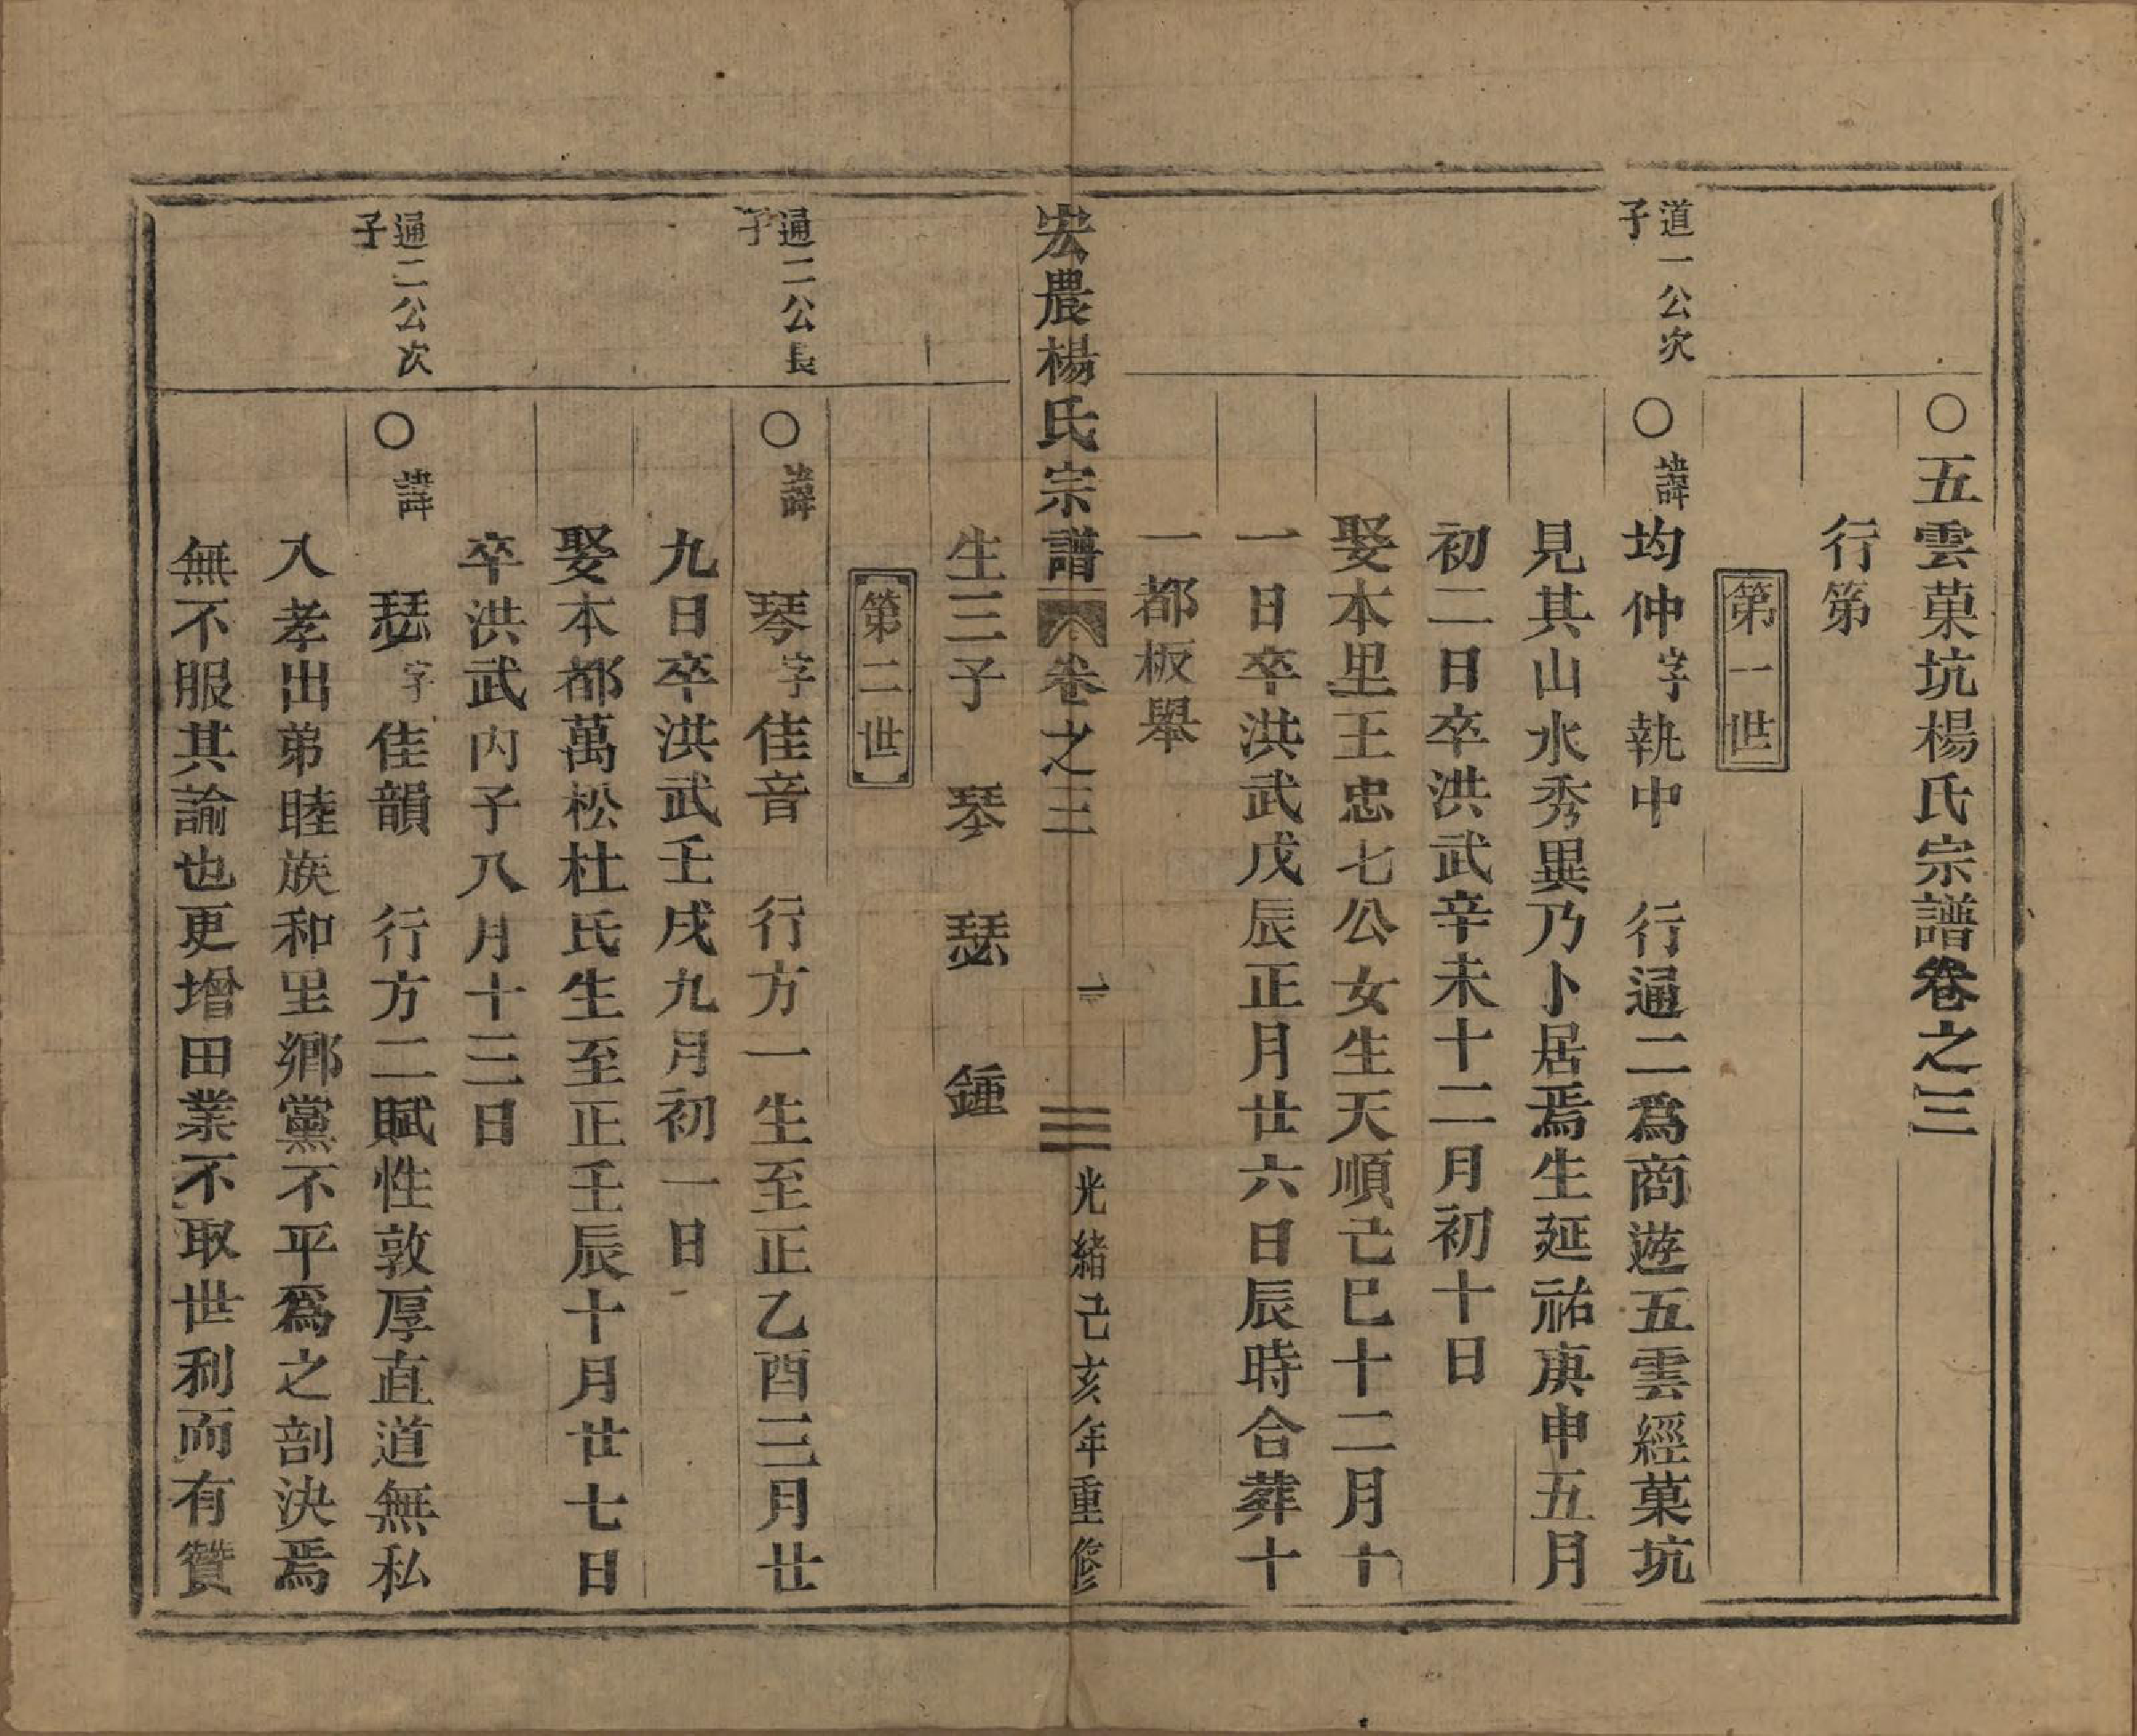 ○五雲菓坑楊氏宗譜卷之三
行第
第一世
道一公次子
○諱均仲字執中 行通二為商遊五雲經菓坑
見其山水秀異乃卜居焉生延祐庚申五月
初二日卒洪武辛未十二月初十日
娶本里王忠七公女生天順己巳十二月十
一日卒洪武戊辰正月廿六日辰時合葬十
一都板舉
宏農楊氏宗譜 卷之三 一 光緒己亥年重修
生三子 琴 瑟 鍾
第二世
通二公長子
○諱琴字佳音 行方一生至正乙酉三月廿
九日卒洪武壬戌九月初一日
娶本都萬松杜氏生至正壬辰十月廿七日
卒洪武丙子八月十三日
通二公次子
○諱瑟字佳韻 行方二賦性敦厚直道無私
入孝出弟睦族和里鄉黨不平為之剖決焉
無不服其諭也更增田業不取世利而有贊